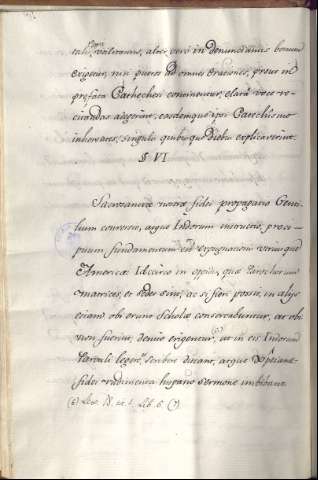 tali valeamus, alter verò in denunciandis bonum
exigetur, nisi pueros ad omnes orationes, prout in
præfato Cathechon continentur, clarâ voce re-
citandas adegerint, easdemque ipsi Catechismo
inhærentes, singulis quibusque diebus explicaverint.
§ VI
Sacrosanctæ nostræ fidei propagatio Genti-
lium conversio, atque Indorum instructio, præci-
puum fundamentum est expugnationis utriusque
Americæ. Idcirco in Oppidis, quæ Parochiarum
matrices, et sedes sint, ac si fieri possit, in alijs
etiam ubi erunt Scholæ conserventur, ac ubi
non fuerint, denuo erigentur, ac in eis Indorum
Parvuli legere, et scribere discant, atque Xptianæ
fidei rudimenta hispano sermone imbibant.
(6) Lex. Lib. 6. (7)